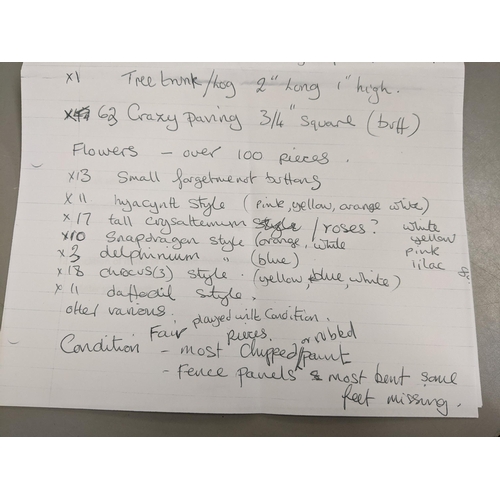 x1 Tree trunk/Log 2" Long 1" high.
x 63 Crazy paving 3/4" square (buff)
Flowers - over 100 pieces.
x13 Small forgetmenot buttons
x11 hyacynth style (pink, yellow, orange white)
x17 tall crysaltemum style / roses? white
x10 Snapdragon style (orange, white yellow
x3 delphinium " (blue) pink
x18 crocus(3) style. (yellow, blue, white) lilac &
x11 daffodil style.
other various.
Fair played with condition.
Condition - most chipped pieces. or rubbed paint
- Fence panels most bent some
feet missing.